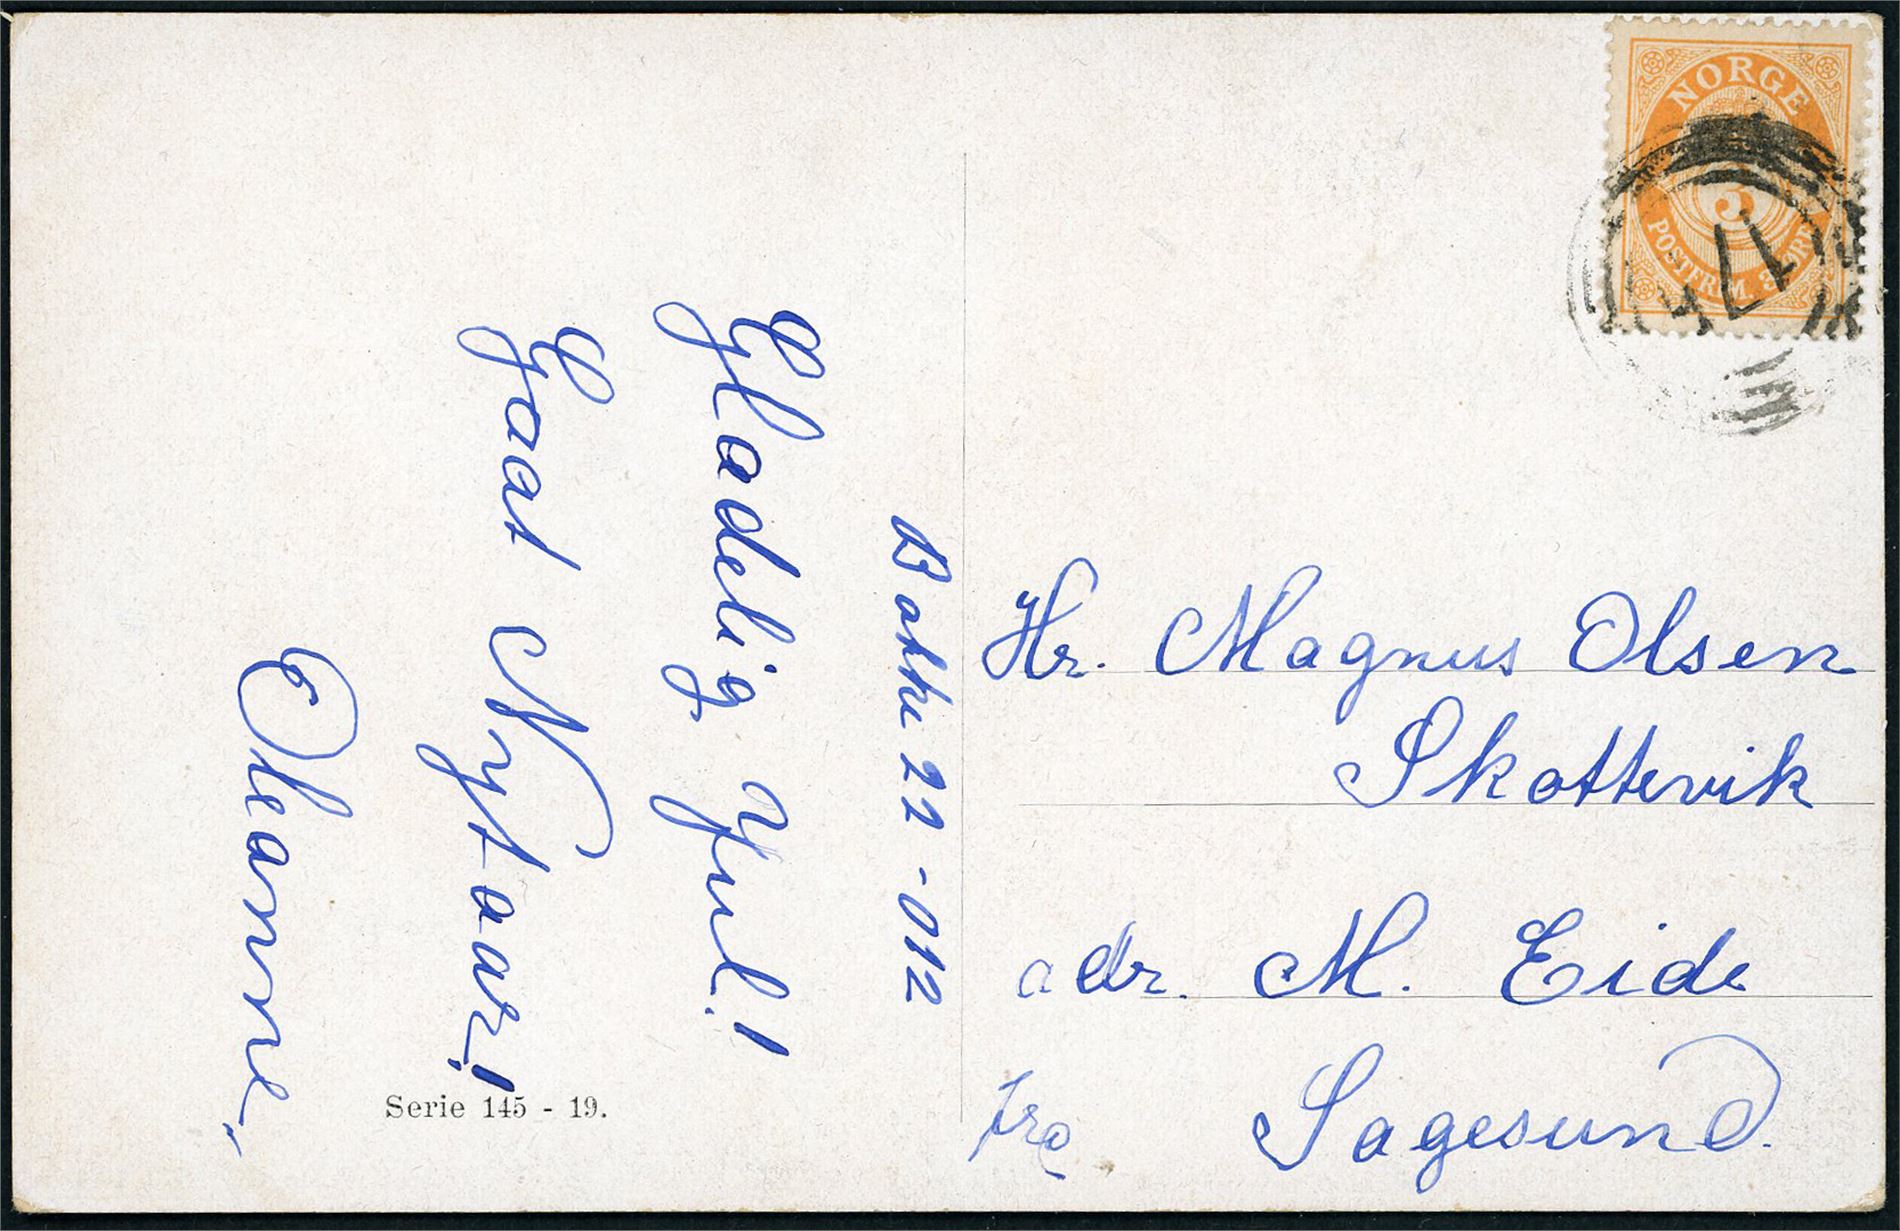 Bakke 22-012
Glædelig Jul!
Godt Nytaar!
Oleanne
Serie 145 - 19.
NORGE
3
POSTFRIM. 3 ØRE
17
Hr. Magnus Olsen
Skottevik
adr. M. Eide
fra Sagesund.